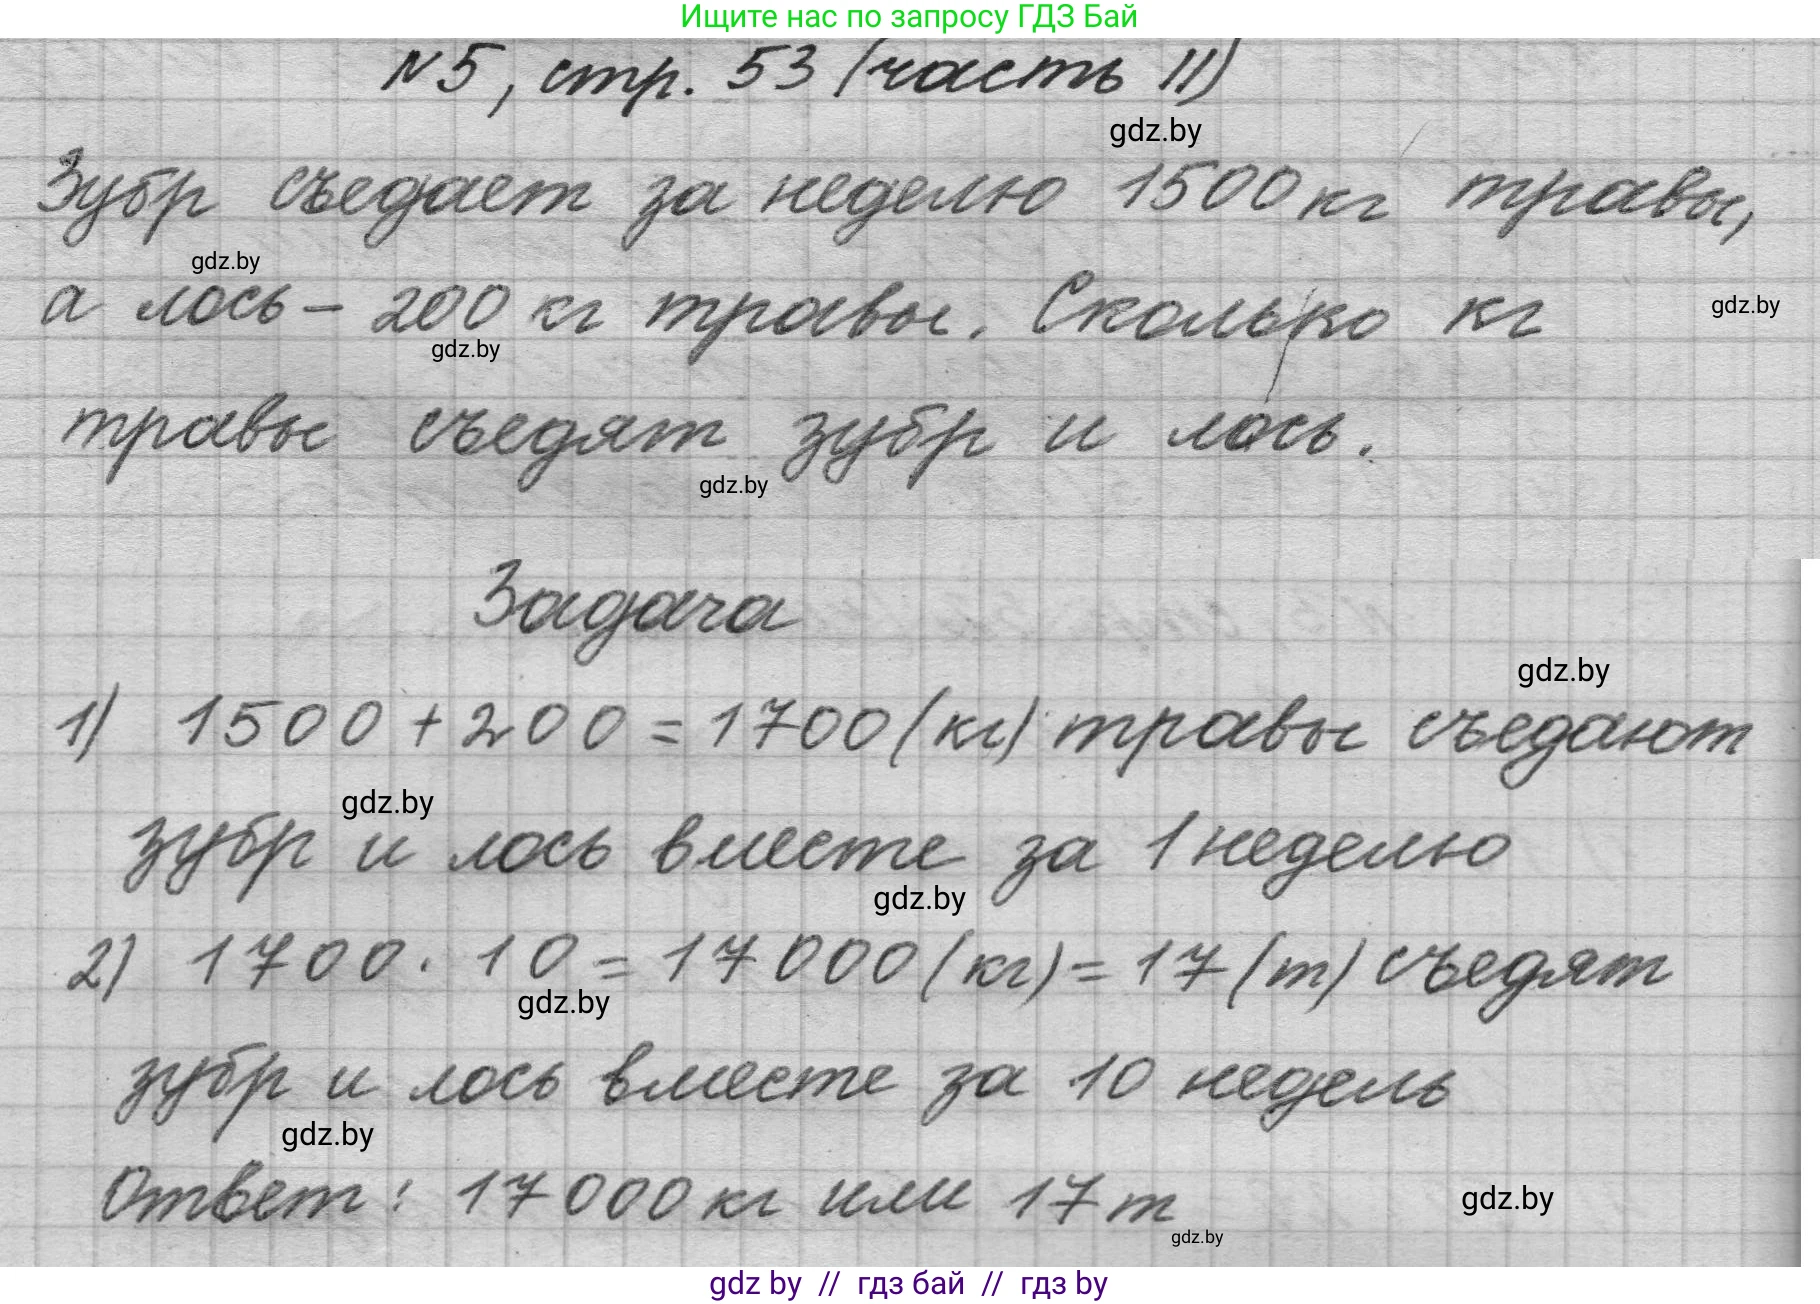 Ищите нас по запросу ГДЗ Бай
N5, стр. 53 (часть II)
gdz.by
Зубр съедает за неделю 1500 кг травы,
gdz.by
а лось – 200 кг травы. Сколько кг
gdz.by
gdz.by
травы съедят зубр и лось.
gdz.by
Задача
gdz.by
1) 1500 + 200 = 1700 (кг) травы съедают
gdz.by
зубр и лось вместе за 1 неделю
gdz.by
2) 1700 · 10 = 17 000 (кг) = 17 (т) съедят
gdz.by
зубр и лось вместе за 10 недель
gdz.by
Ответ: 17 000 кг или 17 т
gdz.by
gdz.by
gdz by // гдз бай // гдз by